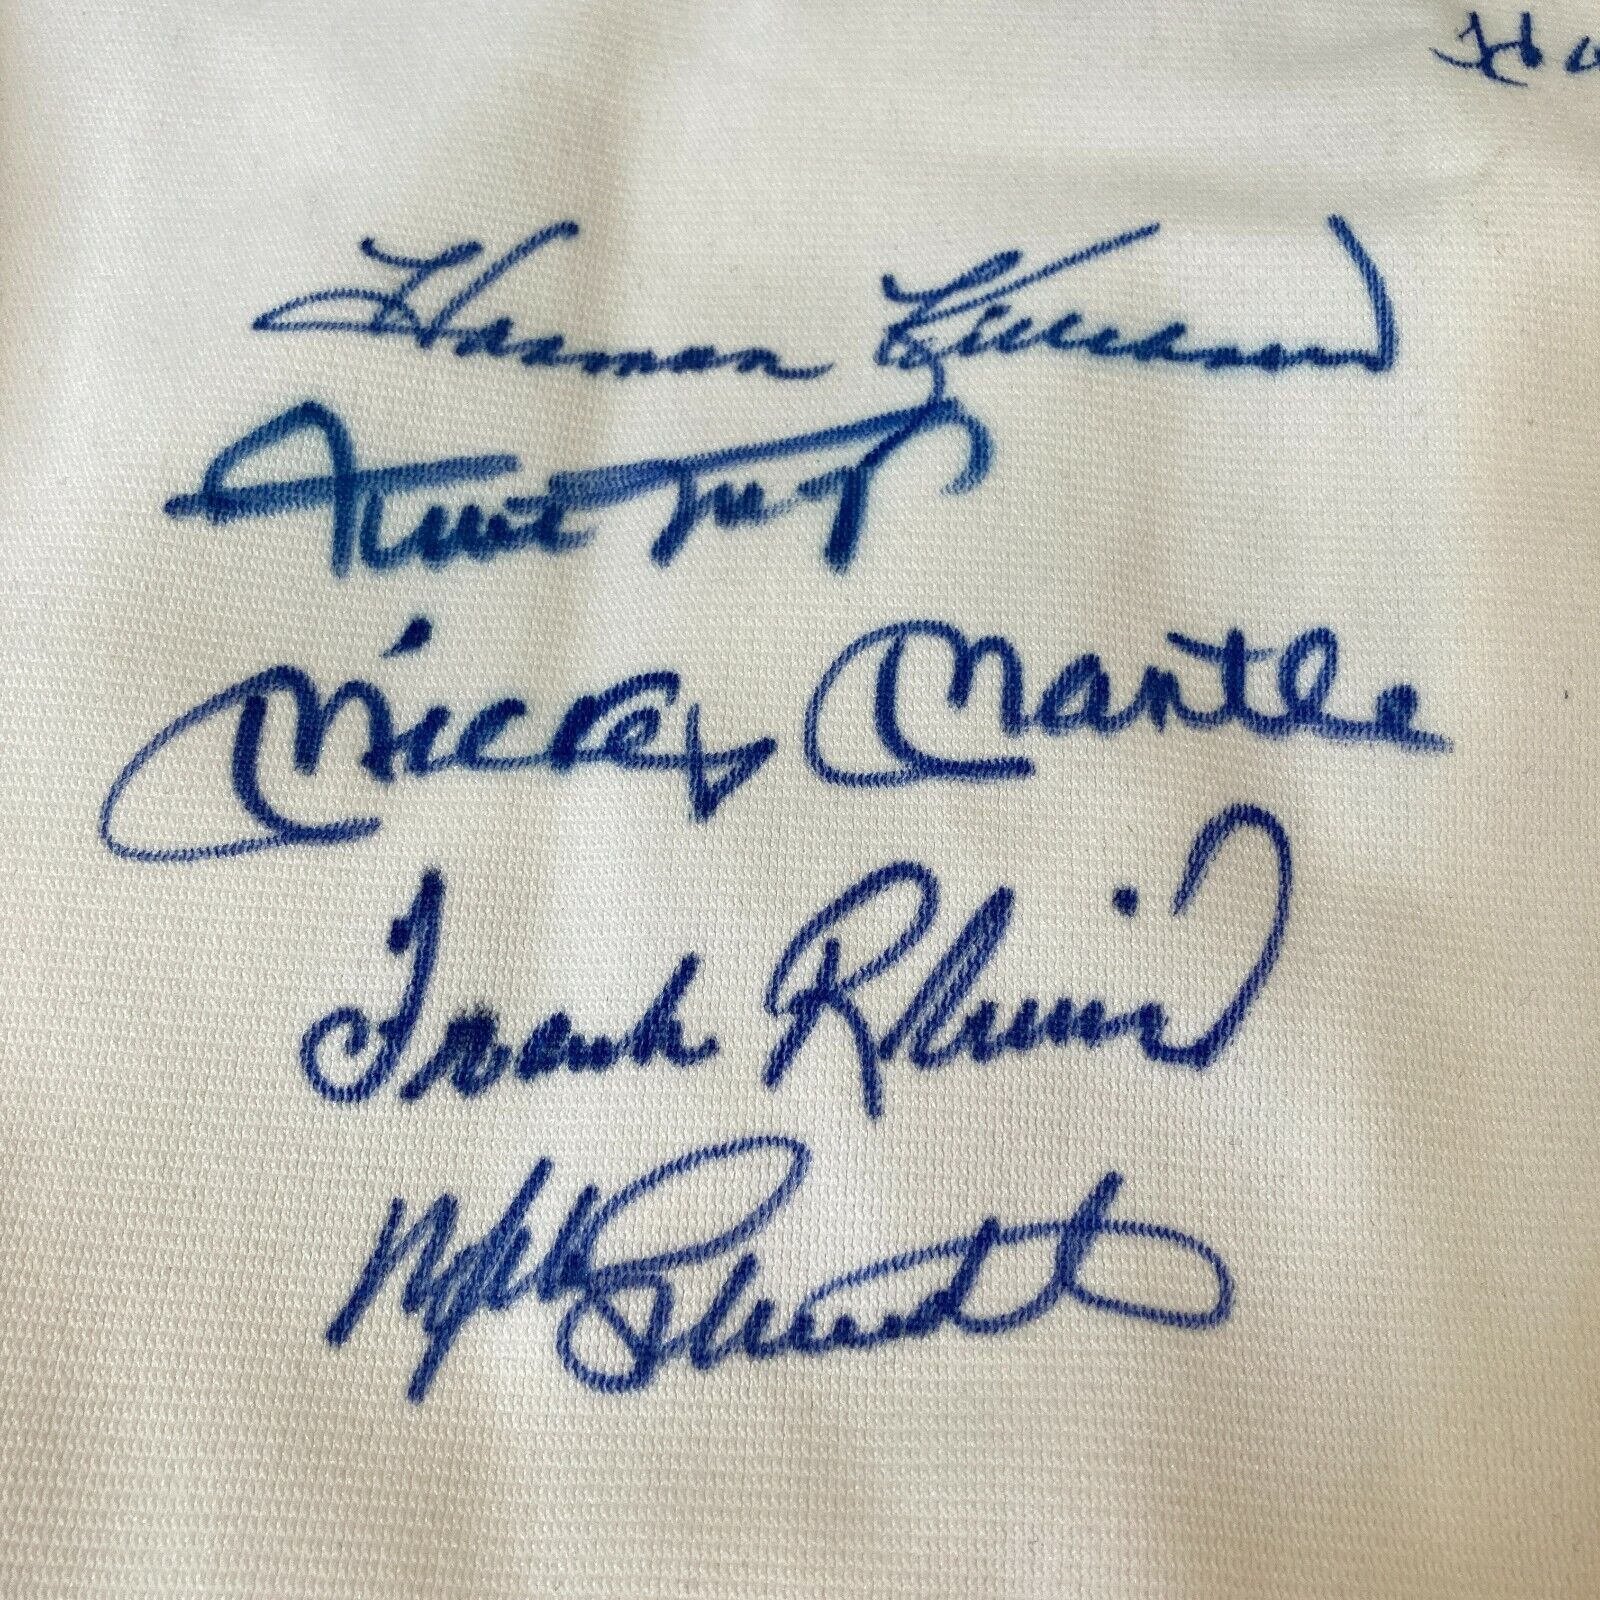 Harmon Killebrew
Willie McC
Mickey Mantle
Frank Robinson
Mike Schmidt